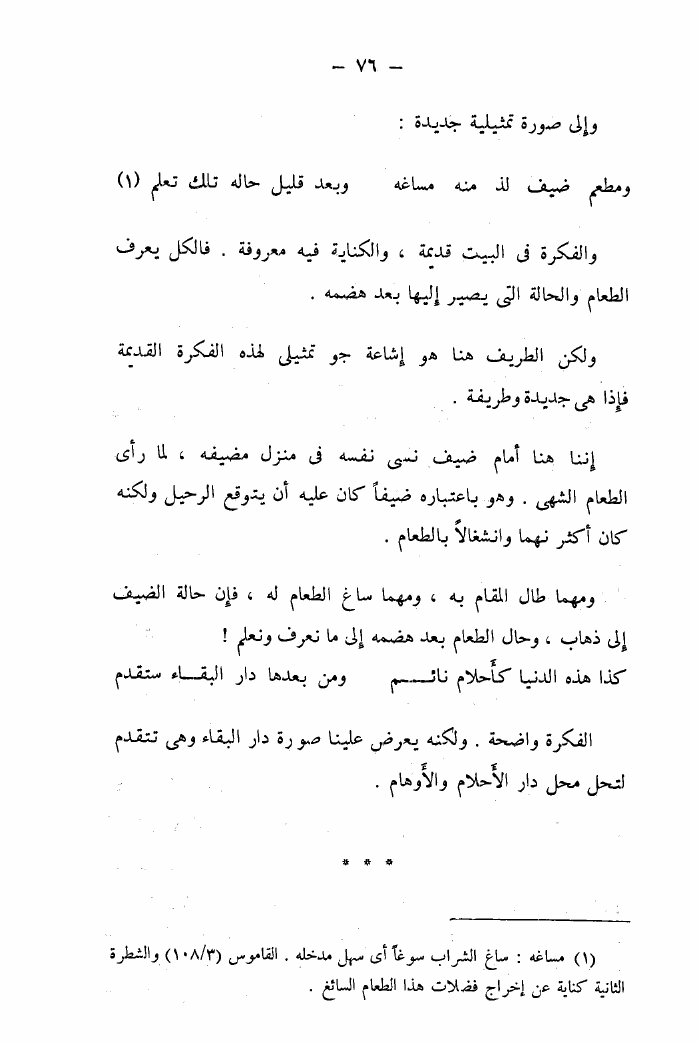 – ٧٦ –
وإلى صورة تمثيلية جديدة :
ومطعم ضيف لذ منه مساغه وبعد قليل حاله تلك تعلم (١)
والفكرة فى البيت قديمة ، والكناية فيه معروفة . فالكل يعرف
الطعام والحالة التى يصير إليها بعد هضمه .
ولكن الطريف هنا هو إشاعة جو تمثيلى لهذه الفكرة القديمة
فإذا هى جديدة وطريفة .
إننا هنا أمام ضيف نسى نفسه فى منزل مضيفه ، لما رأى
الطعام الشهى . وهو باعتباره ضيفاً كان عليه أن يتوقع الرحيل ولكنه
كان أكثر نهما وانشغالاً بالطعام .
ومهما طال المقام به ، ومهما ساغ الطعام له ، فإن حالة الضيف
إلى ذهاب ، وحال الطعام بعد هضمه إلى ما نعرف ونعلم !
كذا هذه الدنيا كأحلام نائــــم ومن بعدها دار البقــاء ستقدم
الفكرة واضحة . ولكنه يعرض علينا صورة دار البقاء وهى تتقدم
لتحل محل دار الأحلام والأوهام .
* * *
(١) مساغه : ساغ الشراب سوغاً أى سهل مدخله . القاموس (١٠٨/٣) والشطرة
الثانية كناية عن إخراج فضلات هذا الطعام السائغ .